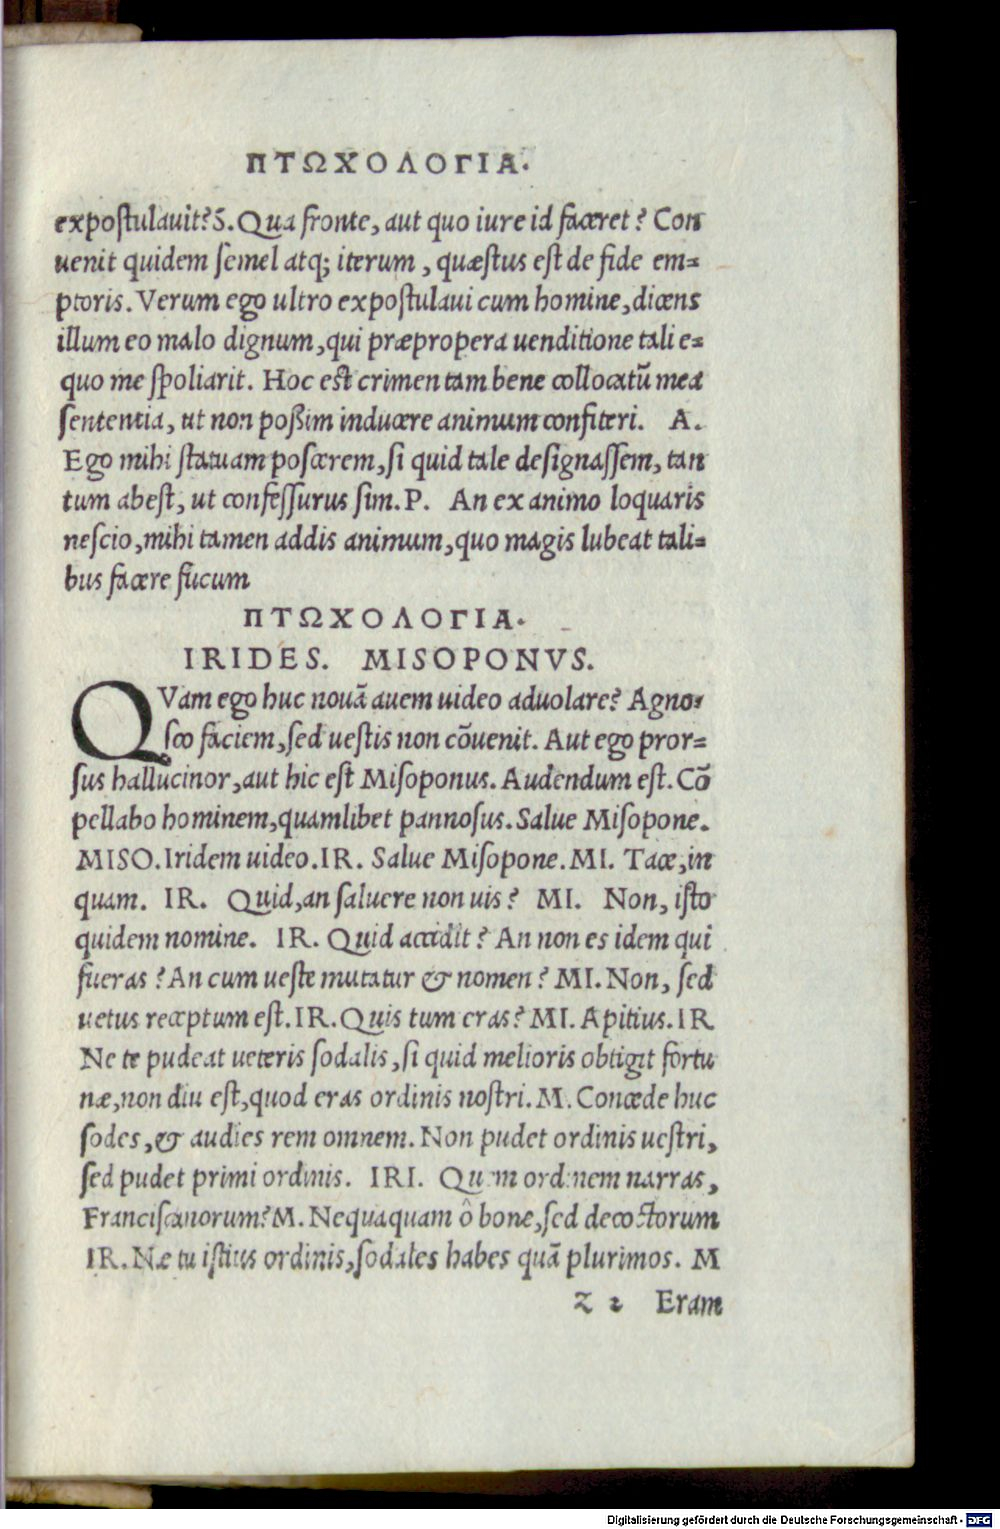 ΠΤΩΧΟΛΟΓΙΑ.
expoſtulauit? S. Qua fronte, aut quo iure id faceret? Con
uenit quidem ſemel atq; iterum, quæſtus eſt de fide em=
ptoris. Verum ego ultro expoſtulaui cum homine, dicens
illum eo malo dignum, qui præpropera uenditione tali e=
quo me ſpoliarit. Hoc eſt crimen tam bene collocatũ mea
ſententia, ut non poßim inducere animum confiteri. A.
Ego mihi ſtatuam poſcerem, ſi quid tale deſignaſſem, tan
tum abeſt, ut confeſſurus ſim. P. An ex animo loquaris
neſcio, mihi tamen addis animum, quo magis lubeat tali=
bus facere fucum
ΠΤΩΧΟΛΟΓΙΑ.
IRIDES. MISOPONVS.
QVam ego huc nouã auem uideo aduolare? Agno=
ſco faciem, ſed ueſtis non cõuenit. Aut ego pror=
ſus hallucinor, aut hic eſt Miſoponus. Audendum eſt. Cõ
pellabo hominem, quamlibet pannoſus. Salue Miſopone.
MISO. Iridem uideo. IR. Salue Miſopone. MI. Tace, in
quam. IR. Quid, an ſaluere non uis? MI. Non, iſto
quidem nomine. IR. Quid accidit? An non es idem qui
fueras? An cum ueſte mutatur & nomen? MI. Non, ſed
uetus receptum eſt. IR. Quis tum eras? MI. Apitius. IR
Ne te pudeat ueteris ſodalis, ſi quid melioris obtigit fortu
næ, non diu eſt, quod eras ordinis noſtri. M. Concede huc
ſodes, & audies rem omnem. Non pudet ordinis ueſtri,
ſed pudet primi ordinis. IRI. Quem ordinem narras,
Franciſcanorum? M. Nequaquam ô bone, ſed decoctorum
IR. Næ tu iſtius ordinis, ſodales habes quã plurimos. M
z 2 Eram
Digitalisierung gefördert durch die Deutsche Forschungsgemeinschaft - DFG